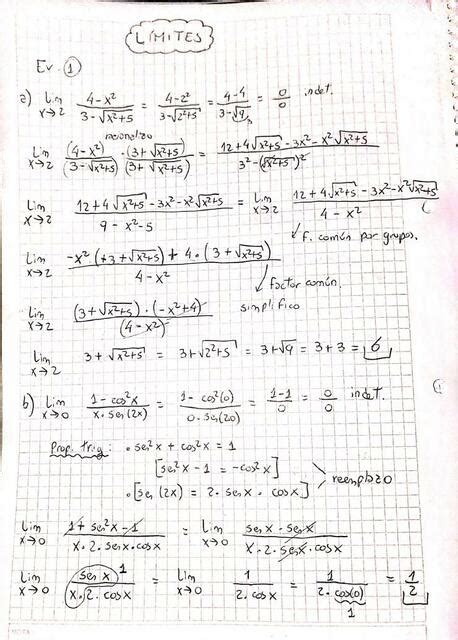 LÍMITES
Ev. 1
a) Lim x→2 (4-x²)/(3-√(x²+5)) = (4-2²)/(3-√(2²+5)) = (4-4)/(3-√9) = 0/0 indet.
racionalizo
Lim x→2 (4-x²)/(3-√(x²+5)) · (3+√(x²+5))/(3+√(x²+5)) = (12+4√(x²+5) -3x² -x²√(x²+5))/(3²-(√(x²+5))²)
Lim x→2 (12+4√(x²+5) -3x² -x²√(x²+5))/(9-x²-5) = Lim x→2 (12+4√(x²+5) -3x² -x²√(x²+5))/(4-x²)
F. común por grupos.
Lim x→2 (-x²·(+3+√(x²+5)) + 4·(3+√(x²+5)))/(4-x²)
factor común.
simplifico
Lim x→2 ((3+√(x²+5))·(-x²+4))/(4-x²)
Lim x→2 3+√(x²+5) = 3+√(2²+5) = 3+√9 = 3+3 = 6
b) Lim x→0 (1-cos²x)/(x·sen(2x)) = (1-cos²(0))/(0·sen(20)) = (1-1)/0 = 0/0 indet.
Prop. trig: · sen²x + cos²x = 1
[sen²x - 1 = -cos²x]
· [sen(2x) = 2·senx·cosx]
reemplazo
Lim x→0 (1+sen²x-1)/(x·2·senx·cosx) = Lim x→0 (senx·senx)/(x·2·senx·cosx)
Lim x→0 (senx)/(x·2·cosx) 1 = Lim x→0 1/(2·cosx) = 1/(2·cos(0)) = 1/2
1